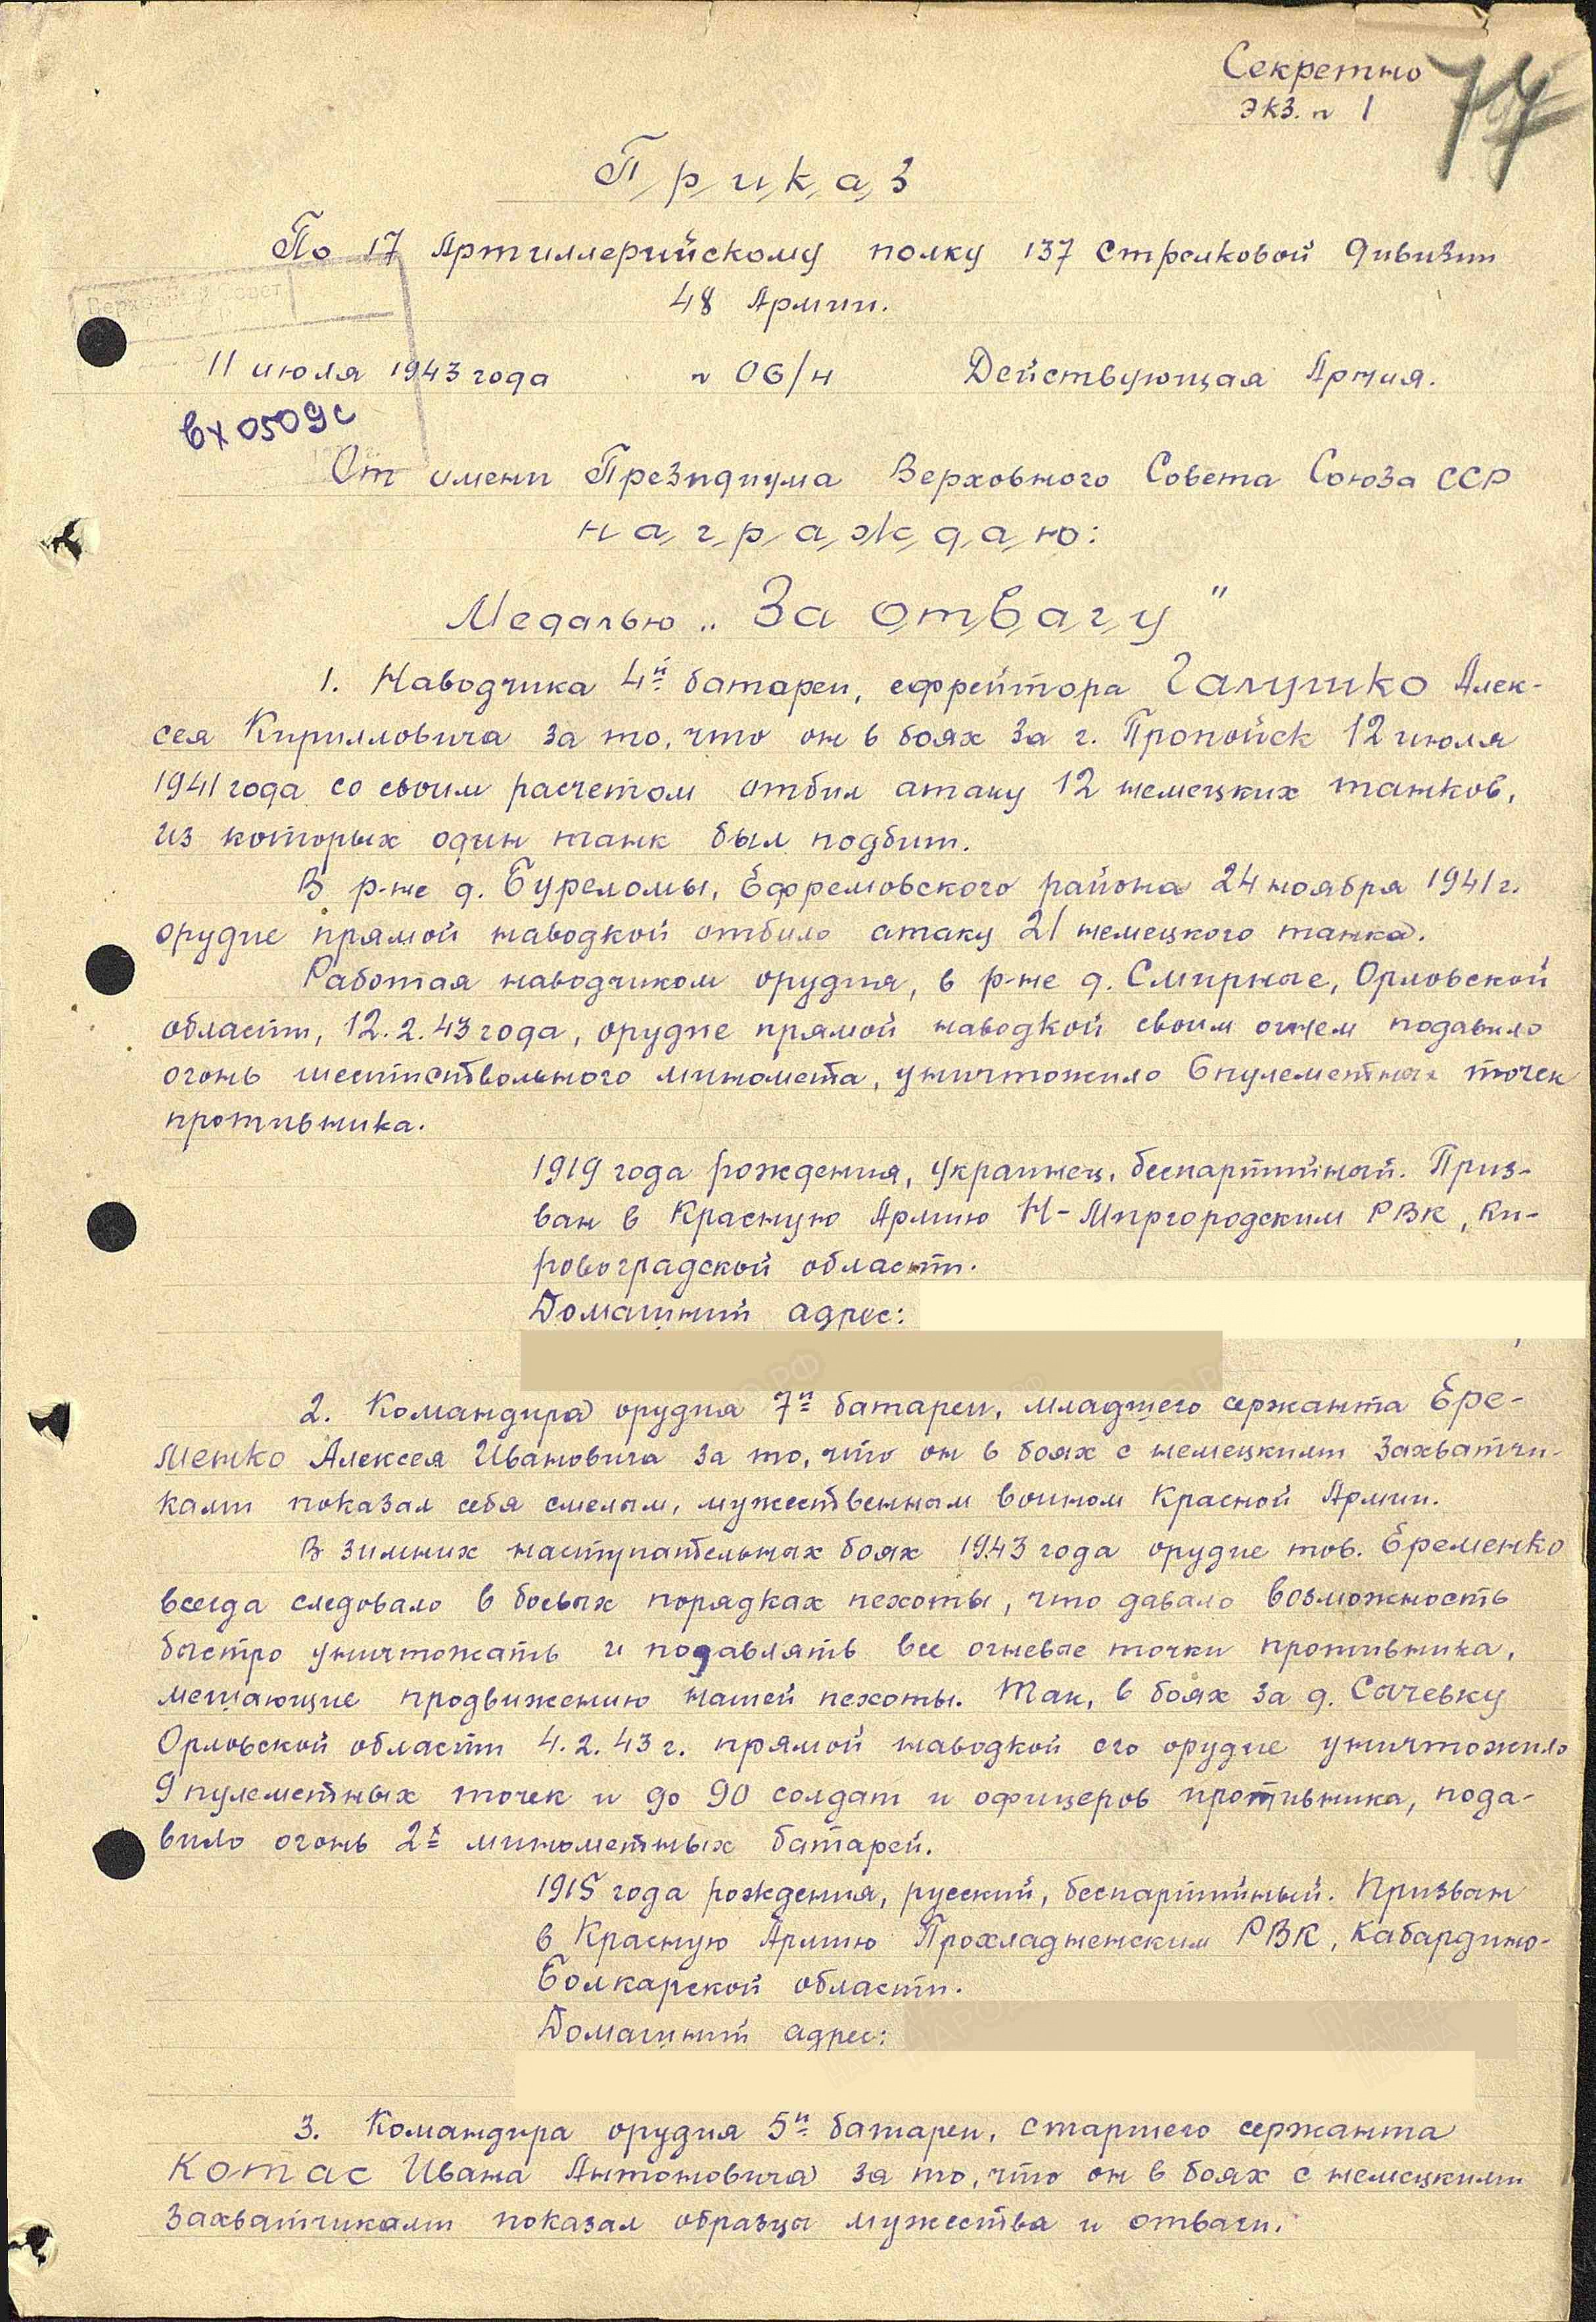 Секретно
экз. № 1
77
Приказ
По 17 Артиллерийскому полку 137 Стрелковой дивизии
48 Армии.
Верховный Совет
11 июля 1943 года № 06/н Действующая Армия.
вх 0509с
От имени Президиума Верховного Совета Союза ССР
награждаю:
Медалью „За отвагу"
1. Наводчика 4й батареи, ефрейтора Галушко Алек-
сея Кирилловича за то, что он в боях за г. Пропойск 12 июля
1941 года со своим расчетом отбил атаку 12 немецких танков,
из которых один танк был подбит.
В р-не д. Буреломы, Ефремовского района 24 ноября 1941 г.
орудие прямой наводкой отбило атаку 21 немецкого танка.
Работая наводчиком орудия, в р-не д. Смирные, Орловской
области, 12.2.43 года, орудие прямой наводкой своим огнем подавило
огонь шестиствольного миномета, уничтожило 6 пулеметных точек
противника.
1919 года рождения, украинец, беспартийный. Приз-
ван в Красную Армию Н-Миргородским РВК, Ки-
ровоградской области.
Домашний адрес:
2. Командира орудия 7й батареи, младшего сержанта Ере-
менко Алексея Ивановича за то, что он в боях с немецкими захватчи-
ками показал себя смелым, мужественным воином Красной Армии.
В зимних наступательных боях 1943 года орудие тов. Еременко
всегда следовало в боевых порядках пехоты, что давало возможность
быстро уничтожать и подавлять все огневые точки противника,
мешающие продвижению нашей пехоты. Так, в боях за д. Сычевку
Орловской области 4.2.43 г. прямой наводкой его орудие уничтожило
9 пулеметных точек и до 90 солдат и офицеров противника, пода-
вило огонь 2х минометных батарей.
1915 года рождения, русский, беспартийный. Призван
в Красную Армию Прохладненским РВК, Кабардино-
Болкарской области.
Домашний адрес:
3. Командира орудия 5й батареи, старшего сержанта
Котас Ивана Антоновича за то, что он в боях с немецкими
захватчиками показал образцы мужества и отваги.